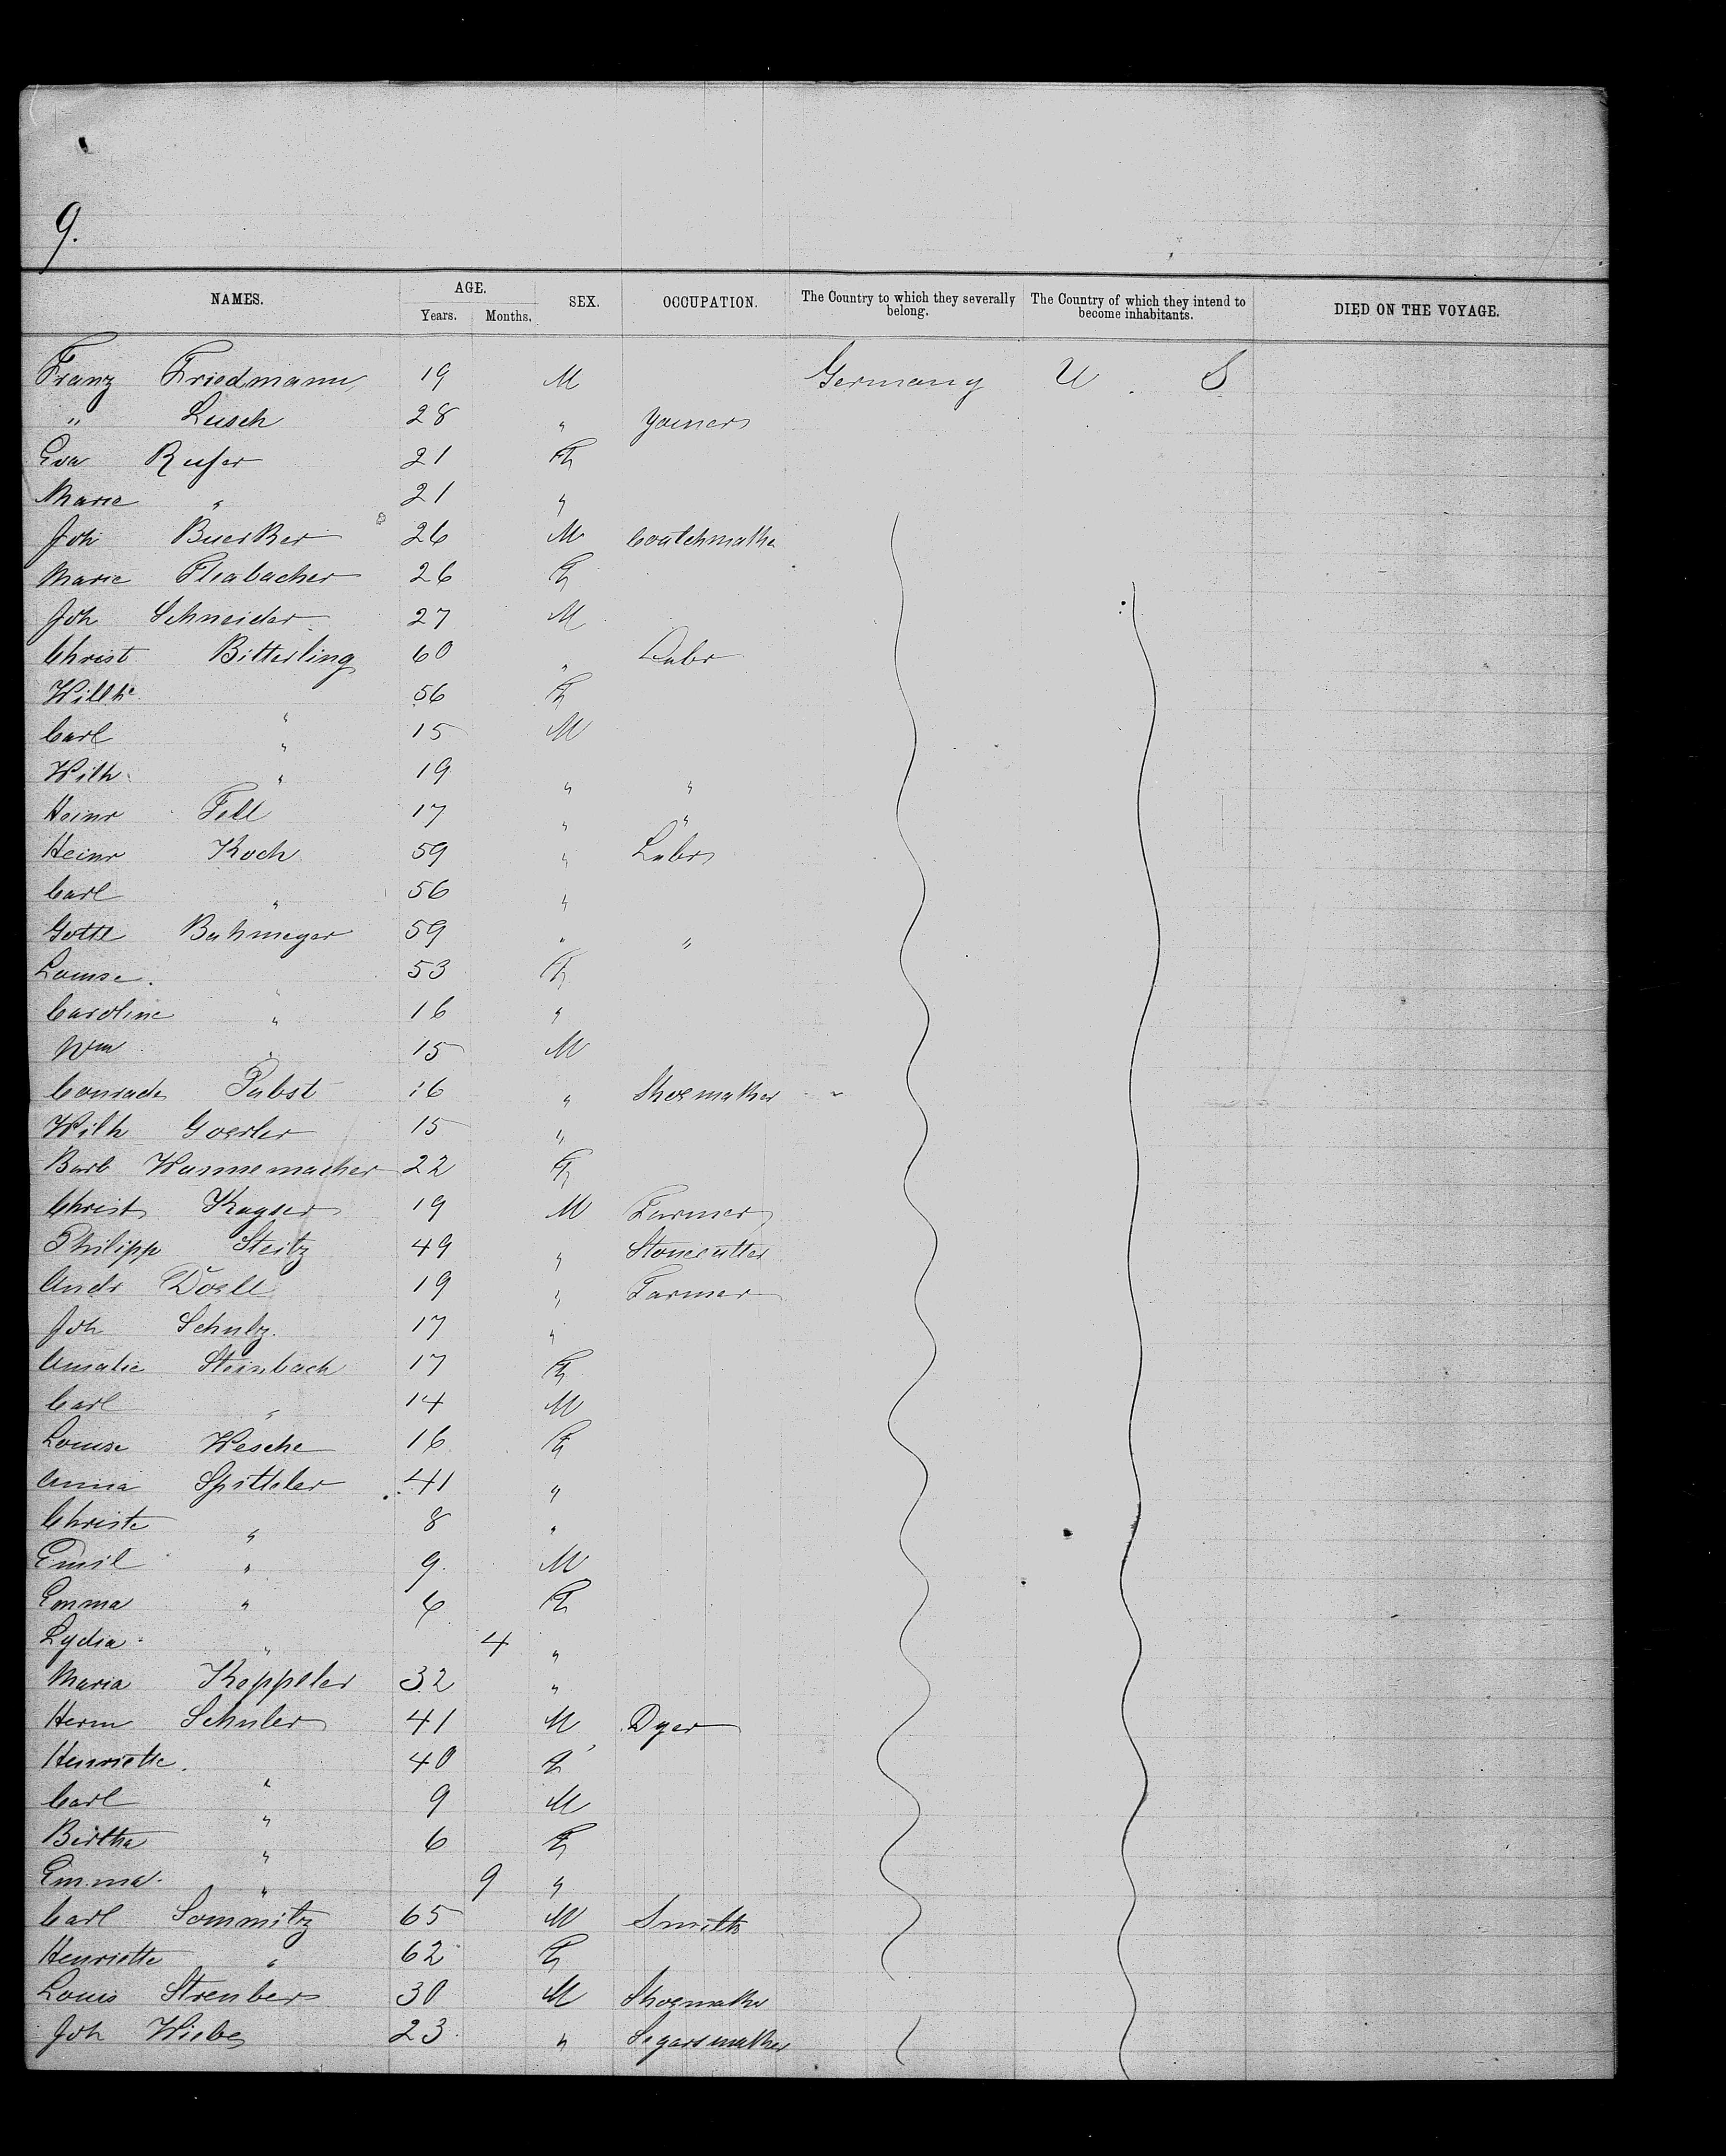 9.
NAMES. AGE. SEX. OCCUPATION. The Country to which they severally belong. The Country of which they intend to become inhabitants. DIED ON THE VOYAGE.
Years. Months.
Franz Friedmann 19 M Germany U. S
" Lusch 28 " Yoiner
Eva Rufer 21 F
Marie " 21 "
Joh Buerker 26 M
Marie Fleabacher 26 F
Joh Schneider 27 M
Christ Bitterling 60 " Labr
Willhe " 56 F
Carl " 15 M
Wilh. " 19 " "
Heinr Fell 17 " "
Heinr Koch 59 " Labr
Carl " 56 "
Gottl Bahmeyer 59 " "
Louise " 53 F
Caroline " 16 "
Wm " 15 M
Conrad Pabst 16 " Shoemaker
Wilh Goerler 15 "
Barb Wannemacher 22 F
Christ Kayser 19 M Farmer
Philipp Steitz 49 " Stonecutter
Andr Doell 19 " Farmer
Joh Schulz. 17 "
Amalie Steinbach 17 F
Carl " 14 M
Louise Wesche 16 F
Anna Spitteler 41 "
Christe " 8 "
Emil " 9 M
Emma " 6 F
Lydia " 4 "
Maria Keppeler 32 "
Herm Schuler 41 M Dyer
Henriette. " 40 F
Carl " 9 M
Bertha " 6 F
Emma " 9 "
Carl Sommitz 65 M Smith
Henriette " 62 F
Louis Strenber 30 M Shoemaker
Joh Wiebe 23 " Segarsmaker